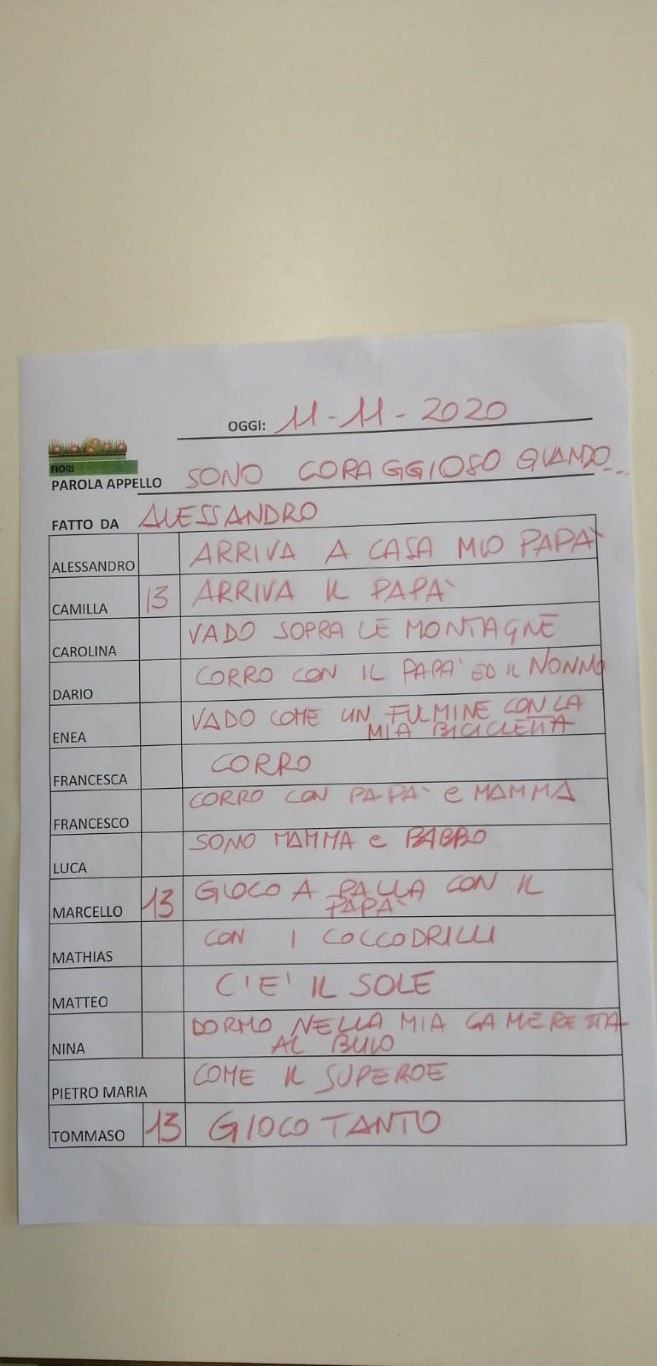 OGGI: 11-11-2020
FIORI
PAROLA APPELLO SONO CORAGGIOSO QUANDO...
FATTO DA ALESSANDRO
ALESSANDRO ARRIVA A CASA MIO PAPA'
CAMILLA 13 ARRIVA IL PAPA'
CAROLINA VADO SOPRA LE MONTAGNE
DARIO CORRO CON IL PAPA' ED IL NONNO
ENEA VADO COME UN FULMINE CON LA
MIA BICICLETTA
FRANCESCA CORRO
FRANCESCO CORRO CON PAPA' e MAMMA
LUCA SONO MAMMA e BABBO
MARCELLO 13 GIOCO A PALLA CON IL
PAPA'
MATHIAS CON I COCCODRILLI
MATTEO C'E' IL SOLE
NINA DORMO NELLA MIA CAMERETTA
AL BUIO
PIETRO MARIA COME IL SUPEROE
TOMMASO 13 GIOCO TANTO